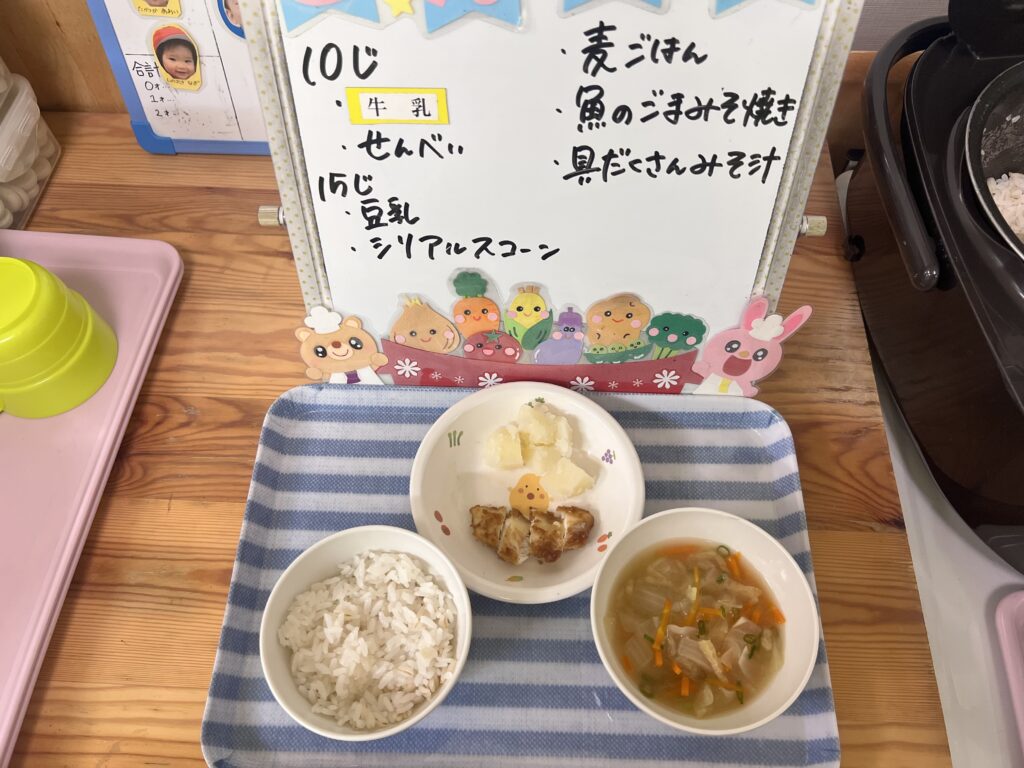 合計
0才…
1才…
2才…
10じ
・牛 乳
・せんべい
15じ
・豆乳
・シリアルスコーン
・麦ごはん
・魚のごまみそ焼き
・具だくさんみそ汁